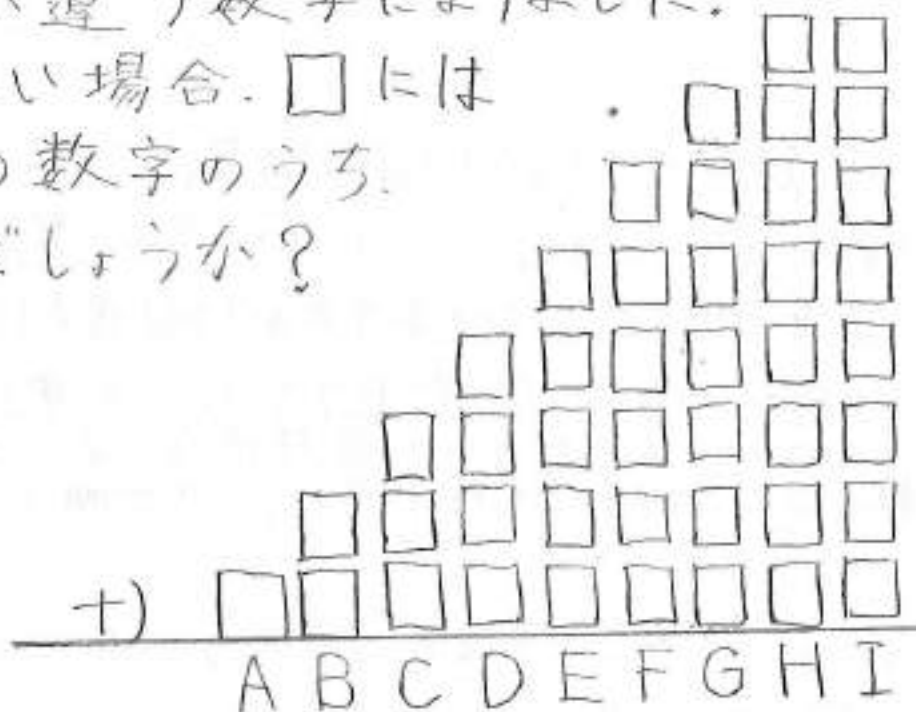 違う数字になりました.
い場合. □には
の数字のうち.
でしょうか?
+)
A B C D E F G H I